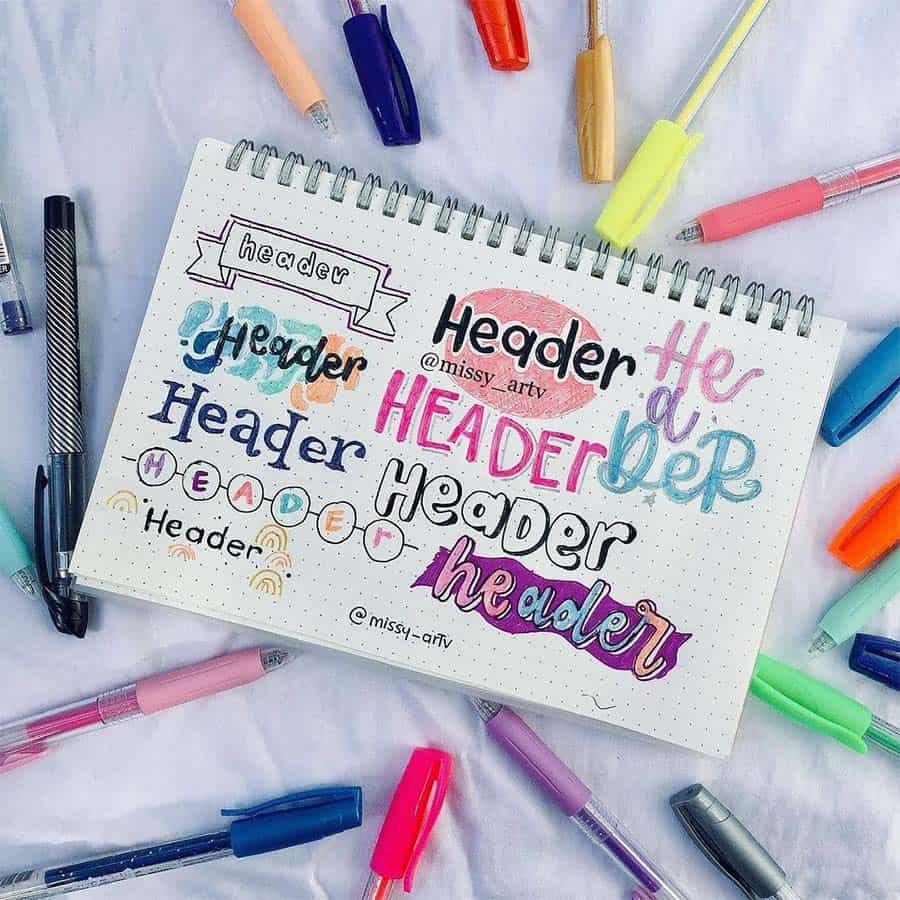 header
Header
Header
HEADER
Header
Header
@missy_artv
HEADER
HeaDer
header
He
a
DeR
@missy_artv